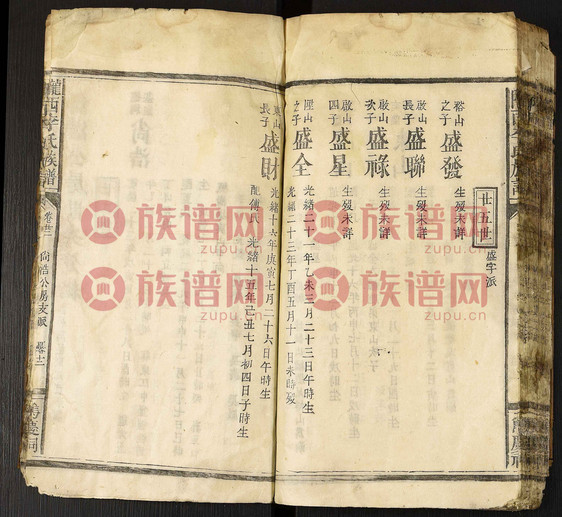 廿五世 盛字派
裕山之子 盛發 生歿未詳
啟山長子 盛聯 生歿未詳
啟山次子 盛祿 生歿未詳
啟山四子 盛星 生歿未詳
山之子 盛全 光緒二十一年乙未三月二十三日午時生
光緒二十三年丁酉五月十一日未時歿
東山長子 盛財 光緒十六年庚寅七月二十六日午時生
配傅氏 光緒十五年己丑七月初四日子時生
隴西李氏族譜
尚浩公房支
族谱网
zupu.cn
族谱网
zupu.cn
族谱网
zupu.cn
族谱网
zupu.cn